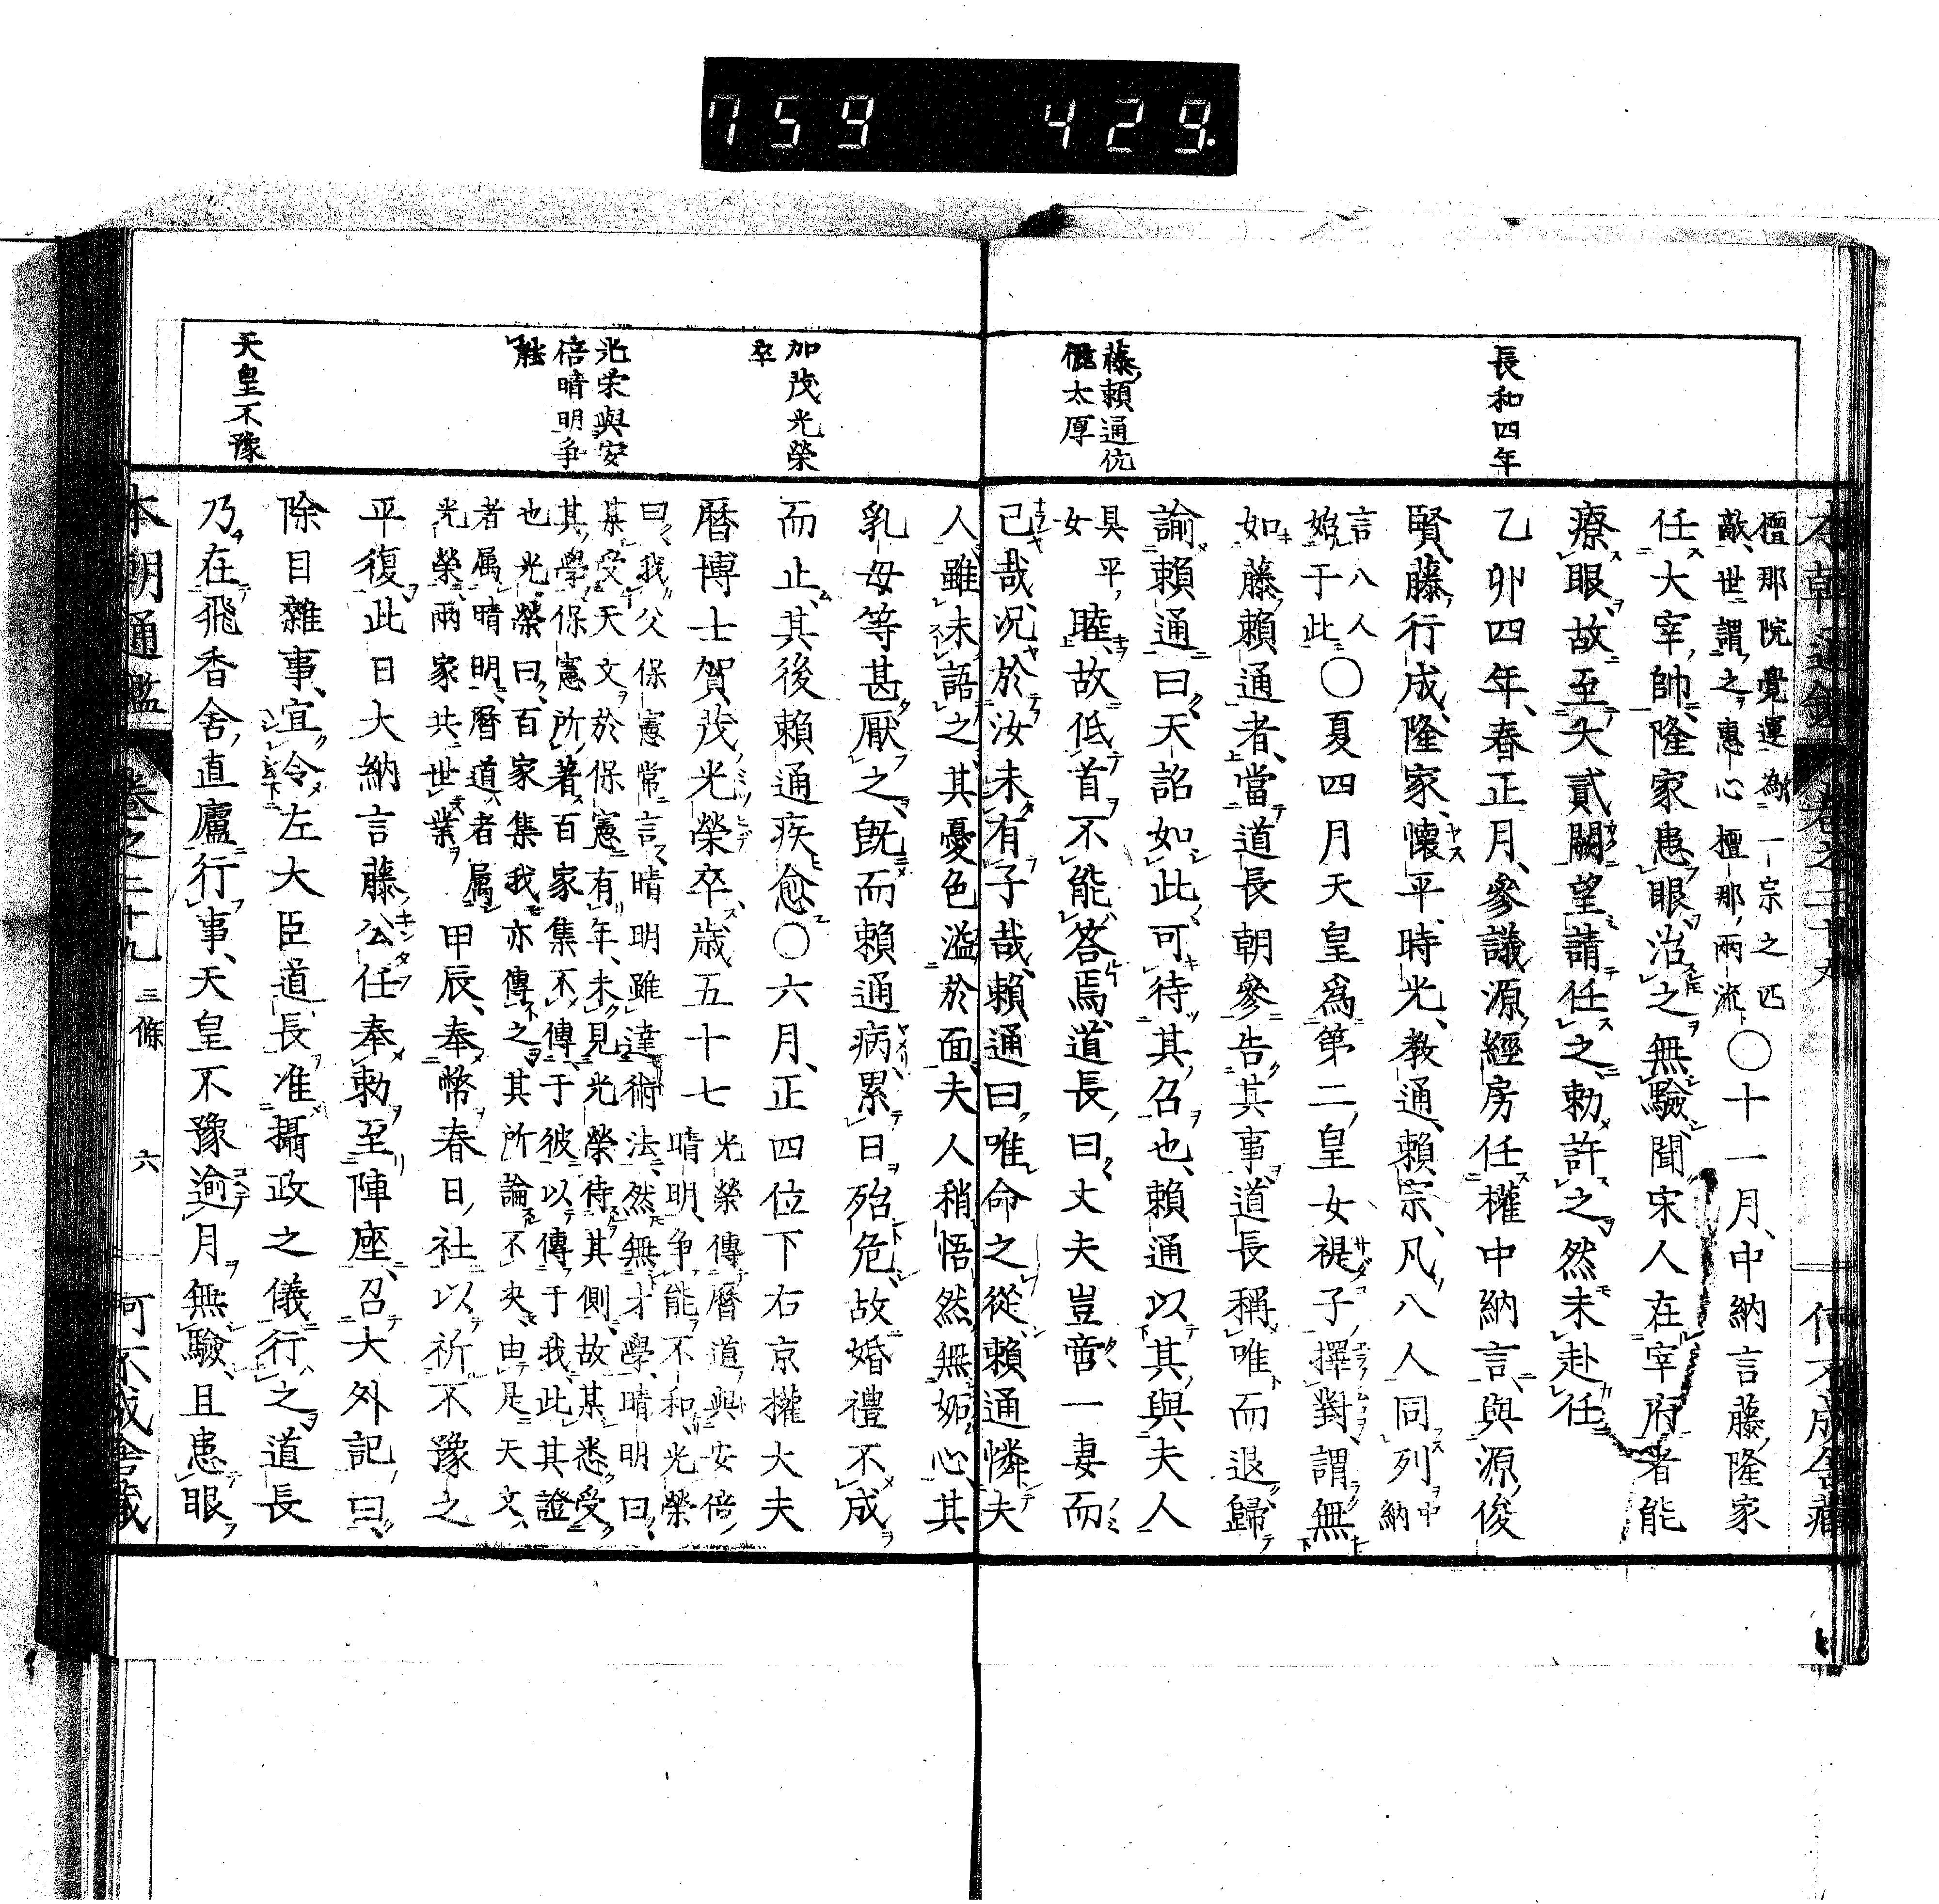 759 429.
本朝通鑑 卷之二十九 何不成舍藏
長和四年
藤頼通伉
儷太厚
檀那院覺運爲一宗之匹
敵世謂之惠心檀那兩流〇十一月中納言藤隆家
任大宰帥隆家患眼治之無驗聞宋人在宰府者能
療眼故至大貳闕望請任之勅許之然未赴任
乙卯四年春正月參議源經房任權中納言與源俊
賢藤行成隆家懷平時光教通頼宗凡八人同列中納
言八人
始于此〇夏四月天皇爲第二皇女禔子擇對謂無
如藤頼通者當道長朝參告其事道長稱唯而退歸
諭頼通曰天詔如此可待其召也頼通以其與夫人
具平
女睦故低首不能答焉道長曰丈夫豈啻一妻而
已哉况於汝未有子哉頼通曰唯命之從頼通憐夫
加茂光榮
卒
光栄與安
倍晴明爭
能
天皇不豫
人雖未語之其憂色溢於面夫人稍悟然無妬心其
乳母等甚厭之既而頼通病累日殆危故婚禮不成
而止其後頼通疾愈〇六月正四位下右京權大夫
曆博士賀茂光榮卒歳五十七光榮傳曆道與安倍
晴明爭能不和光榮
曰我父保憲常言晴明雖達術法然無才學晴明曰
某受天文於保憲有年未見光榮待其側故某悉受
其學保憲所著百家集不傳于彼以傳于我此其證
也光榮曰百家集我亦傳之其所論不決由是天文
者属晴明曆道者属
光榮兩家共世業甲辰奉幣春日社以祈不豫之
平復此日大納言藤公任奉勅至陣座召大外記曰
除目雜事宜令左大臣道長准攝政之儀行之道長
乃在飛香舍直廬行事天皇不豫逾月無驗且患眼
本朝通鑑 卷之二十九 三條 六 何不成舍藏